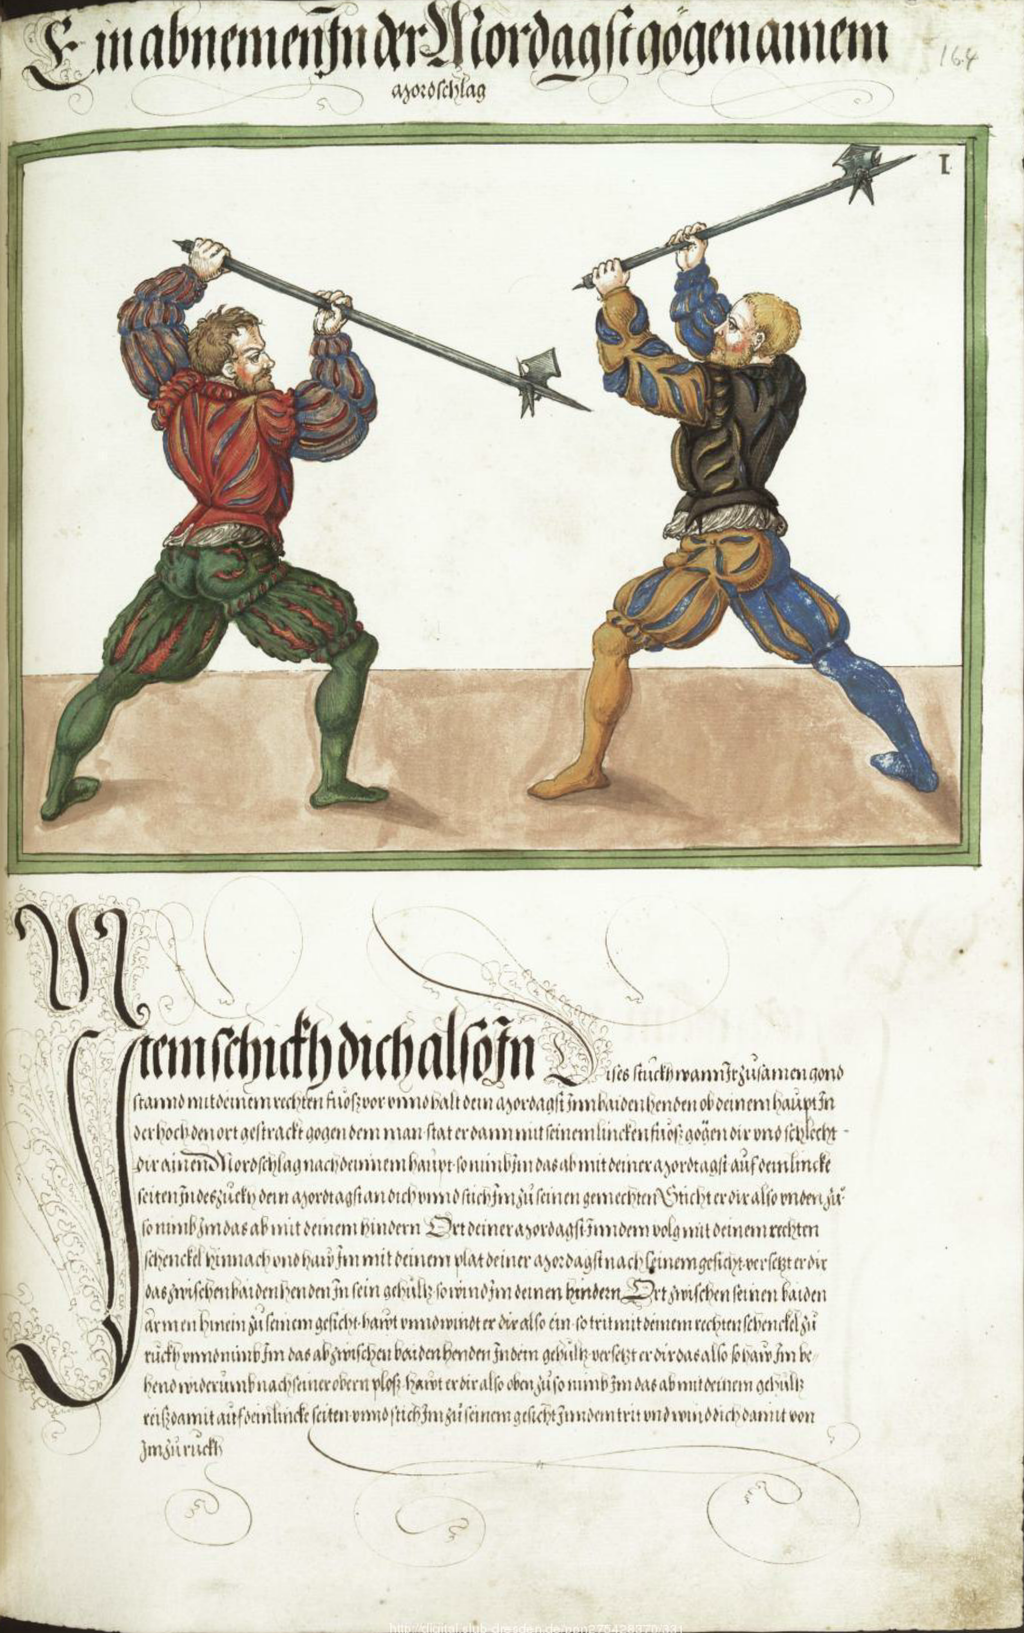 Ein abnemen Jn der Mordagst gögen ainem
164
Mordschlag
I
Item schickh dich also Jn Dises stuckh wann Jr zůsamen gond
stannd mit deinem rechten fůosz vor vnnd halt dein Mordagst Jnn baiden henden ob deinem haupt Jn
der hoch den ort gestrackt gogen dem man stat er dann mit seinem lincken fůosz gögen dir vnd schlecht
dir ainen Mordschlag nach deinnem haupt so nimb Jm das ab mit deiner Mordtagst auf dein lincke
seiten Jn des zuckh dein Mordtagst an dich vnnd stich Jm zů seinen gemechten Sticht er dir also vnden zů
so nimb Jm das ab mit deinem hindern Ort deiner Mordagst Jnn dem volg mit deinem rechten
schenckel hinnach vnd haw Jm mit deinem plat deiner Mordagst nach seinem gesicht versetzt er dir
das zwischen baiden henden Jn sein gehültz so wind Jm deinen hindern Ort zwischen seinen baiden
armen hinein zů seinem gesicht hawt vnnd windt er dir also ein so trit mit deinem rechten schenckel zů
ruckh vnnd nimb Jm das ab zwischen baiden henden Jn dein gehültz versetzt er dir das also so haw Jm be-
hend widerumb nach seiner obern plosz hawt er dir also oben zů so nimb Jm das ab mit deinem gehültz
reisz damit auf dein lincke seiten vnnd stich Jm zů seinem gesicht Jnn dem trit vnd wind dich damit von
Jm zůruckh
http://digital.slub-dresden.de/ppn275428370/331